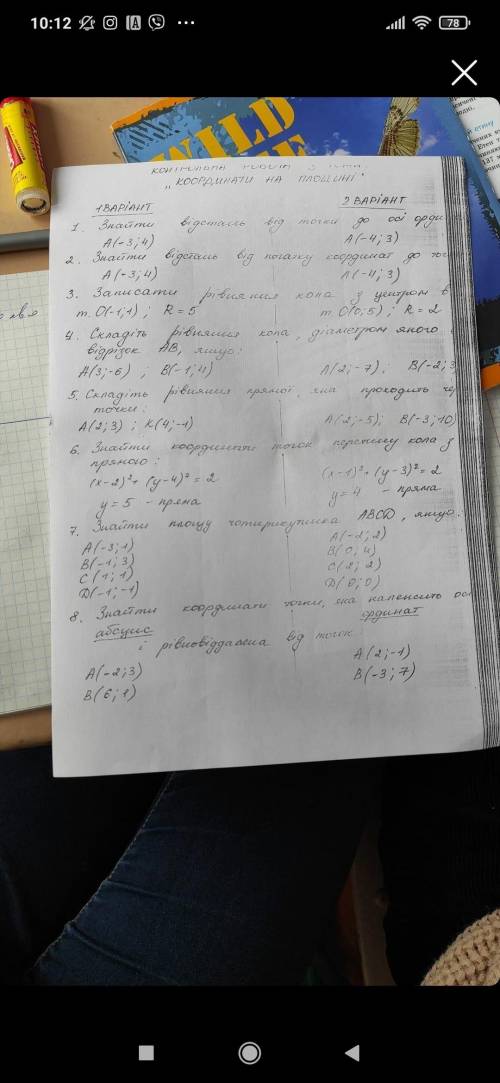 10:12
78
WILD
КОНТРОЛЬНА РОБОТА З ТЕМИ
„КООРДИНАТИ НА ПЛОЩИНІ"
1 ВАРІАНТ 2 ВАРІАНТ
1. Знайти відстань від точки до осі ордин
A(-3; 4) A(-4; 3)
2. Знайти відстань від початку координат до точ
A(-3; 4) A(-4; 3)
3. Записати рівняння кола з центром в
т. O(-1; 1) ; R = 5 т. O(0; 5) ; R = 2
4. Складіть рівняння кола, діаметром якого є
відрізок AB, якщо:
A(3; -6) ; B(-1; 4) A(2; -7) ; B(-2; 3
5. Складіть рівняння прямої, яка проходить чер
точки:
A(2; 3) ; K(4; -1) A(2; -5); B(-3; 10)
6. Знайти координати точок перетину кола з
прямою:
(x-2)² + (y-4)² = 2 (x-1)² + (y-3)² = 2
y = 5 - пряма y = 4 - пряма
7. Знайти площу чотирикутника ABCD, якщо:
A(-3; 1) A(-2; 2)
B(-1; 3) B(0; 4)
C(1; 1) C(2; 2)
D(-1; -1) D(0; 0)
8. Знайти координати точки, яка належить осі
абсцис ординат
і рівновіддалена від точок
A(-2; 3) A(2; -1)
B(6; 1) B(-3; 7)